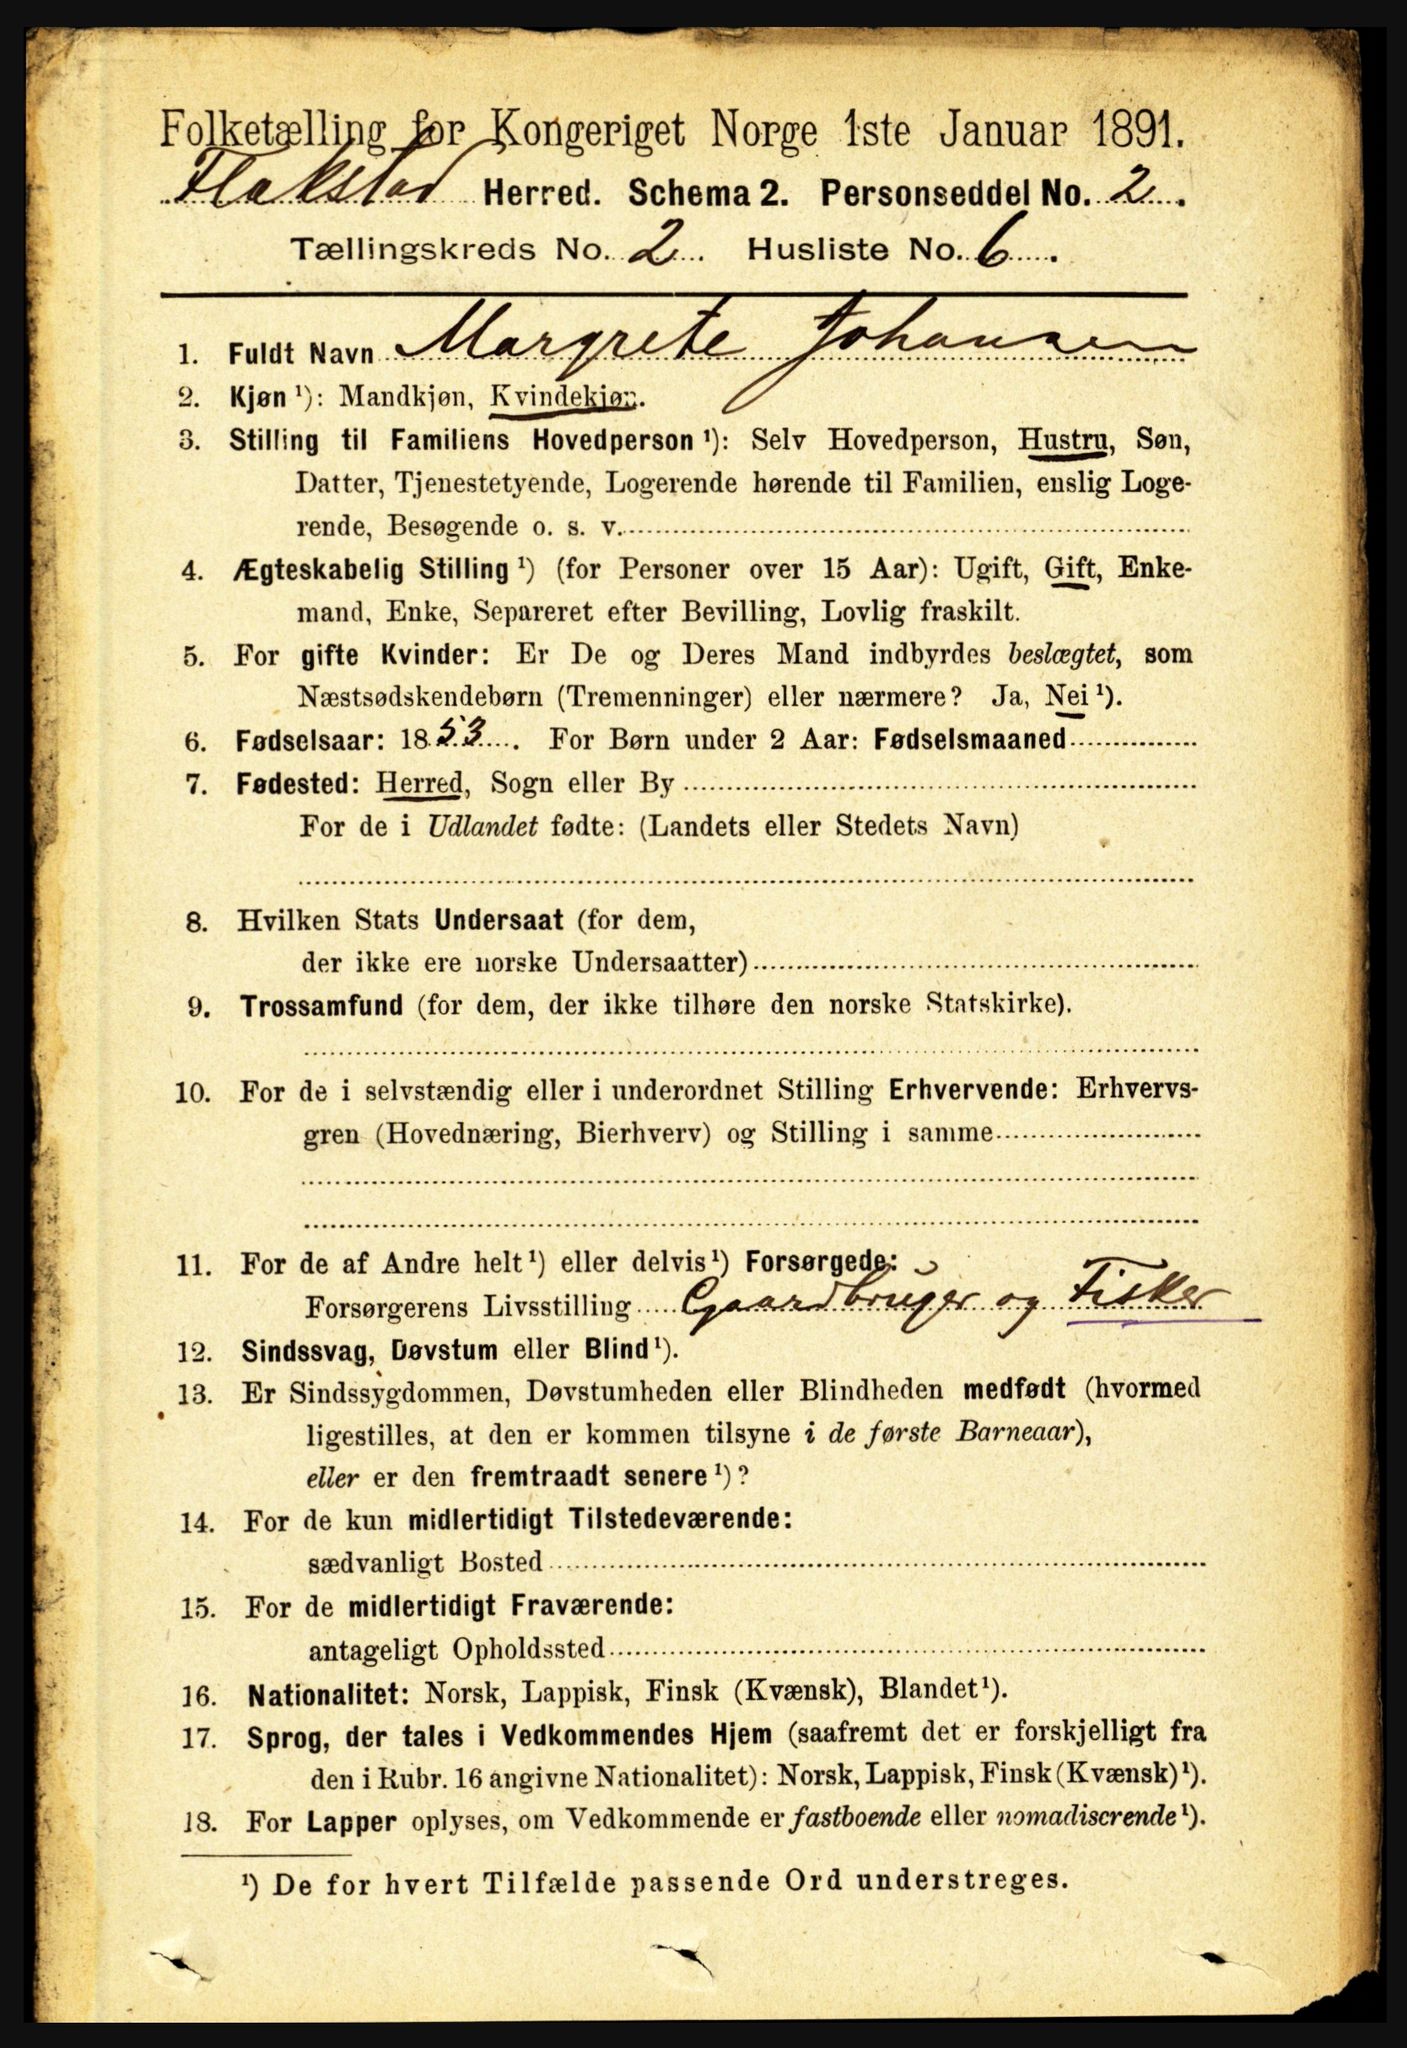 Folketælling for Kongeriget Norge 1ste Januar 1891.
Flakstad Herred. Schema 2. Personseddel No. 2.
Tællingskreds No. 2. Husliste No. 6.
1. Fuldt Navn Margrete Johansen
2. Kjøn ¹): Mandkjøn, Kvindekjøn.
3. Stilling til Familiens Hovedperson ¹): Selv Hovedperson, Hustru, Søn,
Datter, Tjenestetyende, Logerende hørende til Familien, enslig Loge-
rende, Besøgende o. s. v.
4. Ægteskabelig Stilling ¹) (for Personer over 15 Aar): Ugift, Gift, Enke-
mand, Enke, Separeret efter Bevilling, Lovlig fraskilt.
5. For gifte Kvinder: Er De og Deres Mand indbyrdes beslægtet, som
Næstsødskendebørn (Tremenninger) eller nærmere? Ja, Nei ¹).
6. Fødselsaar: 1853. For Børn under 2 Aar: Fødselsmaaned
7. Fødested: Herred, Sogn eller By
For de i Udlandet fødte: (Landets eller Stedets Navn)
8. Hvilken Stats Undersaat (for dem,
der ikke ere norske Undersaatter)
9. Trossamfund (for dem, der ikke tilhøre den norske Statskirke).
10. For de i selvstændig eller i underordnet Stilling Erhvervende: Erhvervs-
gren (Hovednæring, Bierhverv) og Stilling i samme
11. For de af Andre helt ¹) eller delvis ¹) Forsørgede:
Forsørgerens Livsstilling Gaardbruger og Fisker
12. Sindssvag, Døvstum eller Blind ¹).
13. Er Sindssygdommen, Døvstumheden eller Blindheden medfødt (hvormed
ligestilles, at den er kommen tilsyne i de første Barneaar),
eller er den fremtraadt senere ¹)?
14. For de kun midlertidigt Tilstedeværende:
sædvanligt Bosted
15. For de midlertidigt Fraværende:
antageligt Opholdssted
16. Nationalitet: Norsk, Lappisk, Finsk (Kvænsk), Blandet ¹).
17. Sprog, der tales i Vedkommendes Hjem (saafremt det er forskjelligt fra
den i Rubr. 16 angivne Nationalitet): Norsk, Lappisk, Finsk (Kvænsk) ¹).
18. For Lapper oplyses, om Vedkommende er fastboende eller nomadiserende ¹).
¹) De for hvert Tilfælde passende Ord understreges.